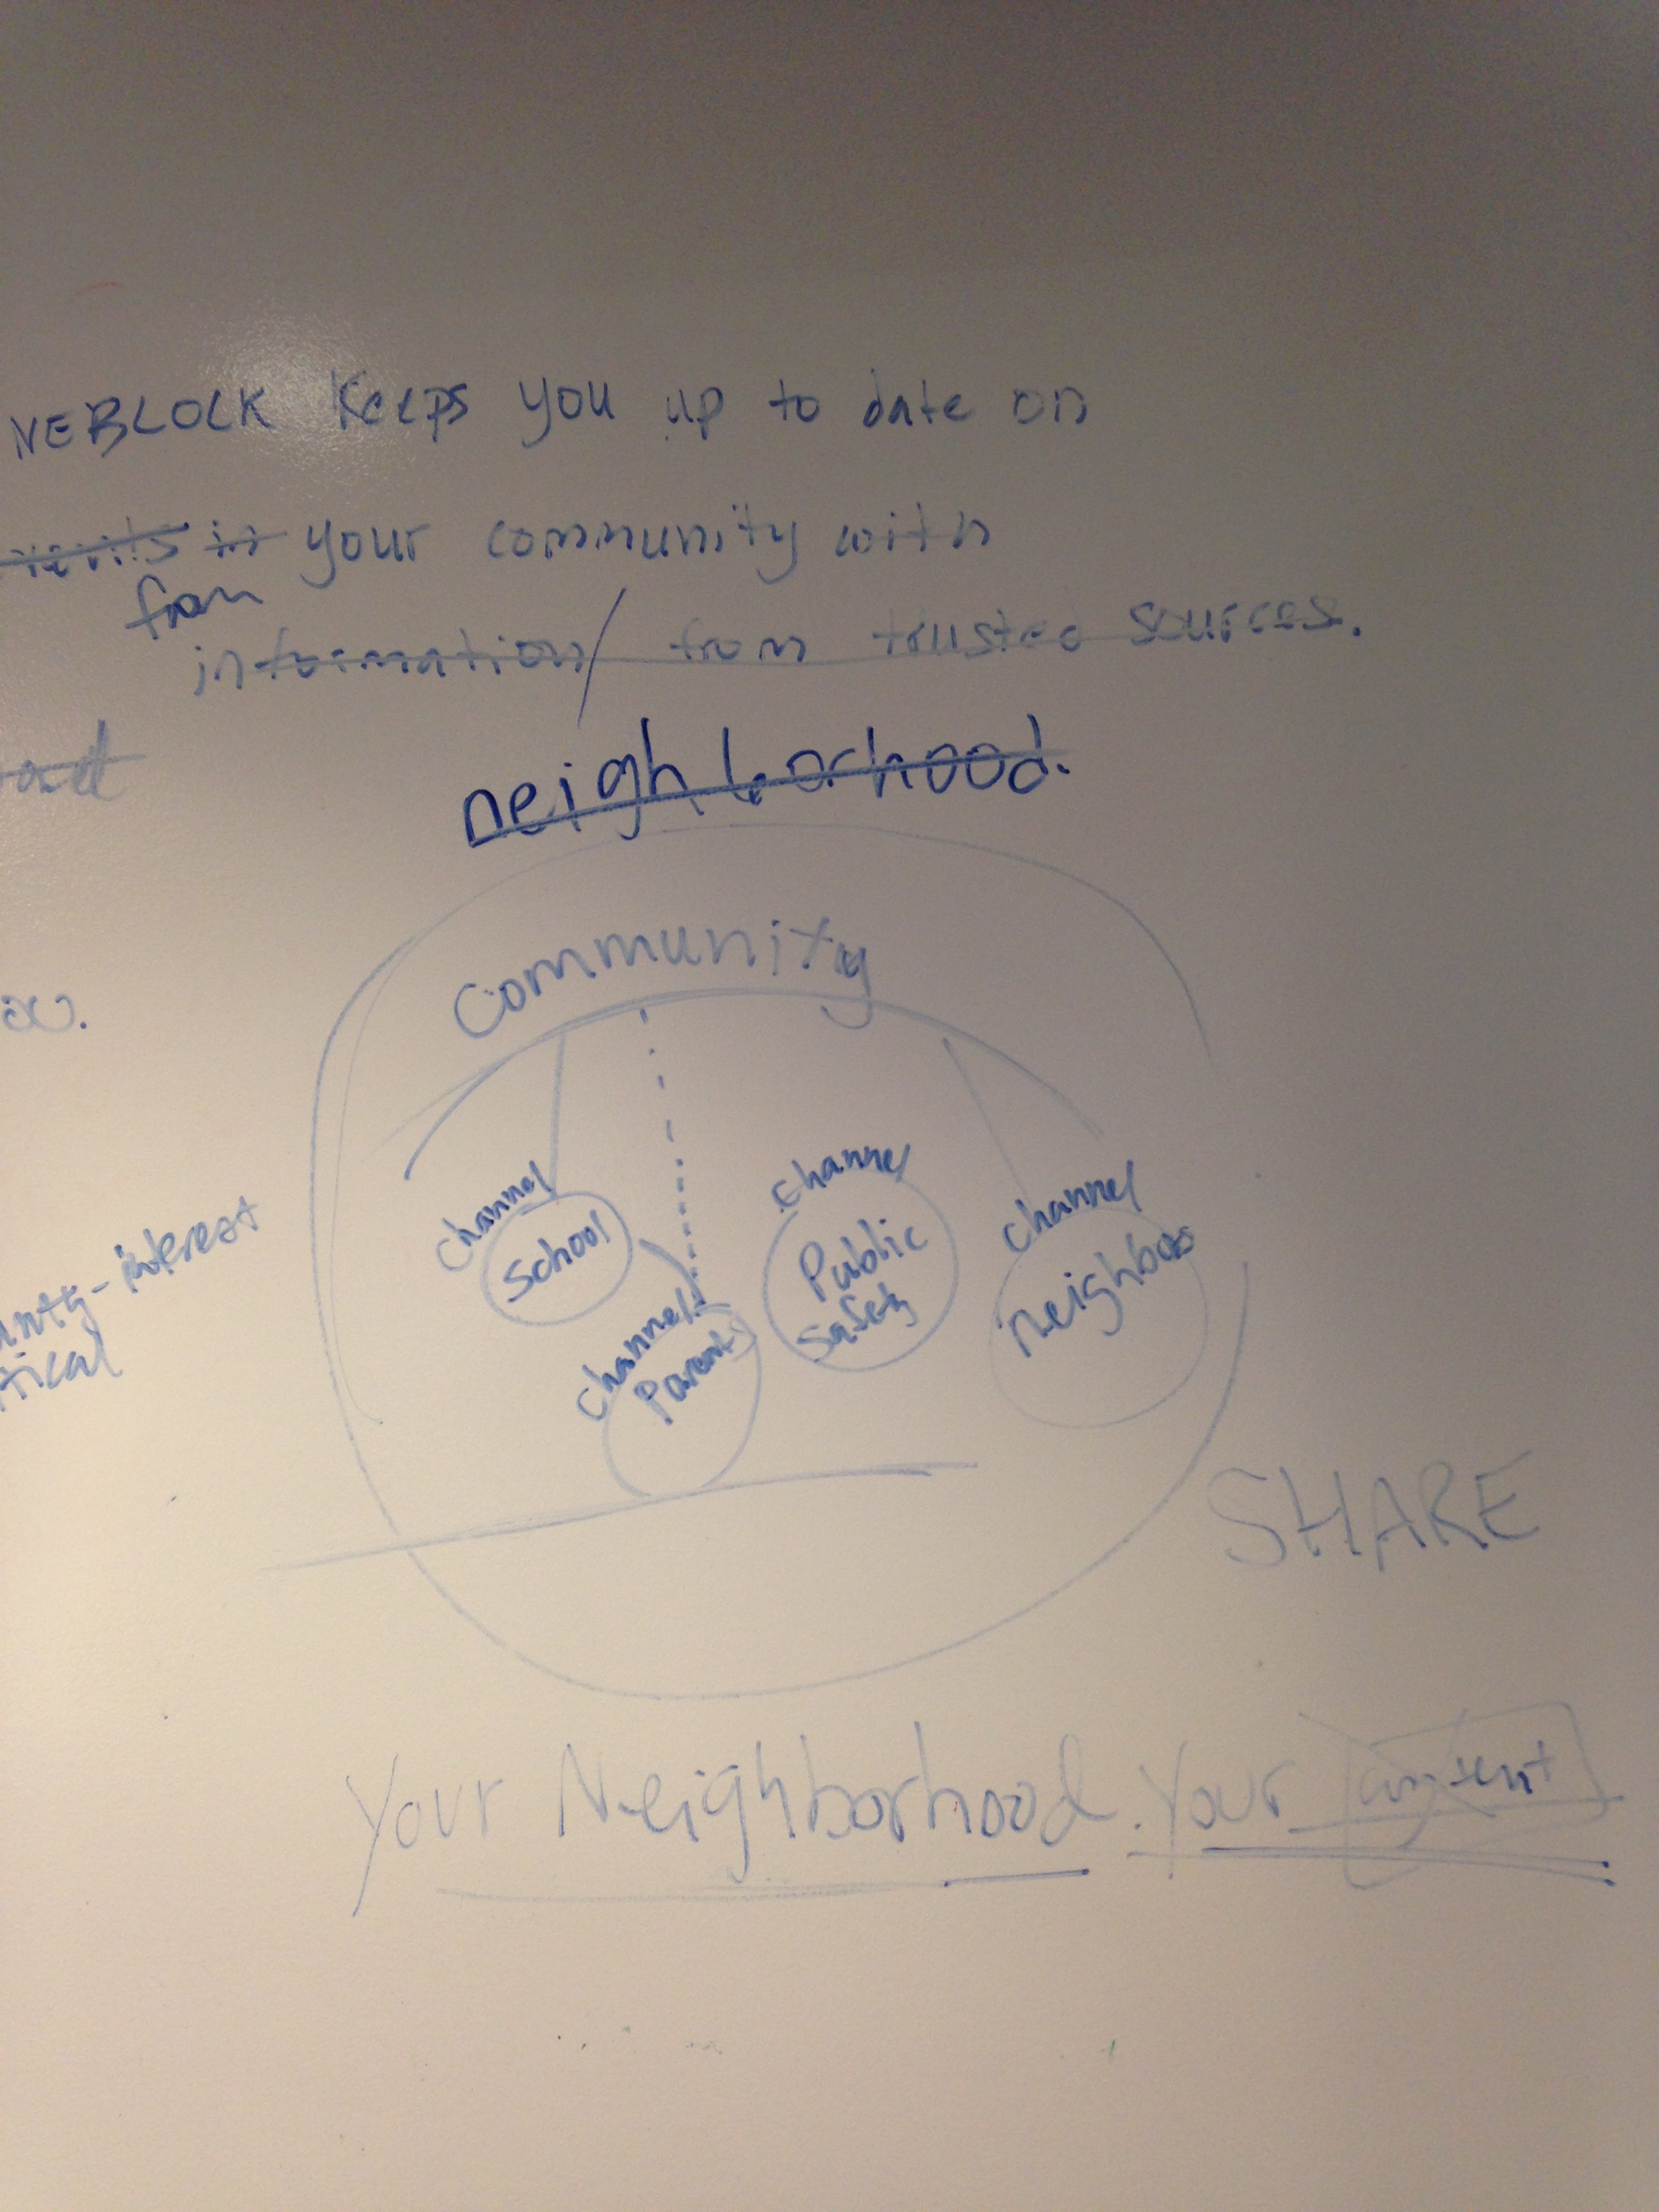 NEBLOCK Keeps you up to date on
in your community with
from
information / from trusted sources.
neighborhood.
Community
channel
School
channel
Parent
channel
Public
Safety
channel
neighbor
interest
SHARE
Your Neighborhood. Your content